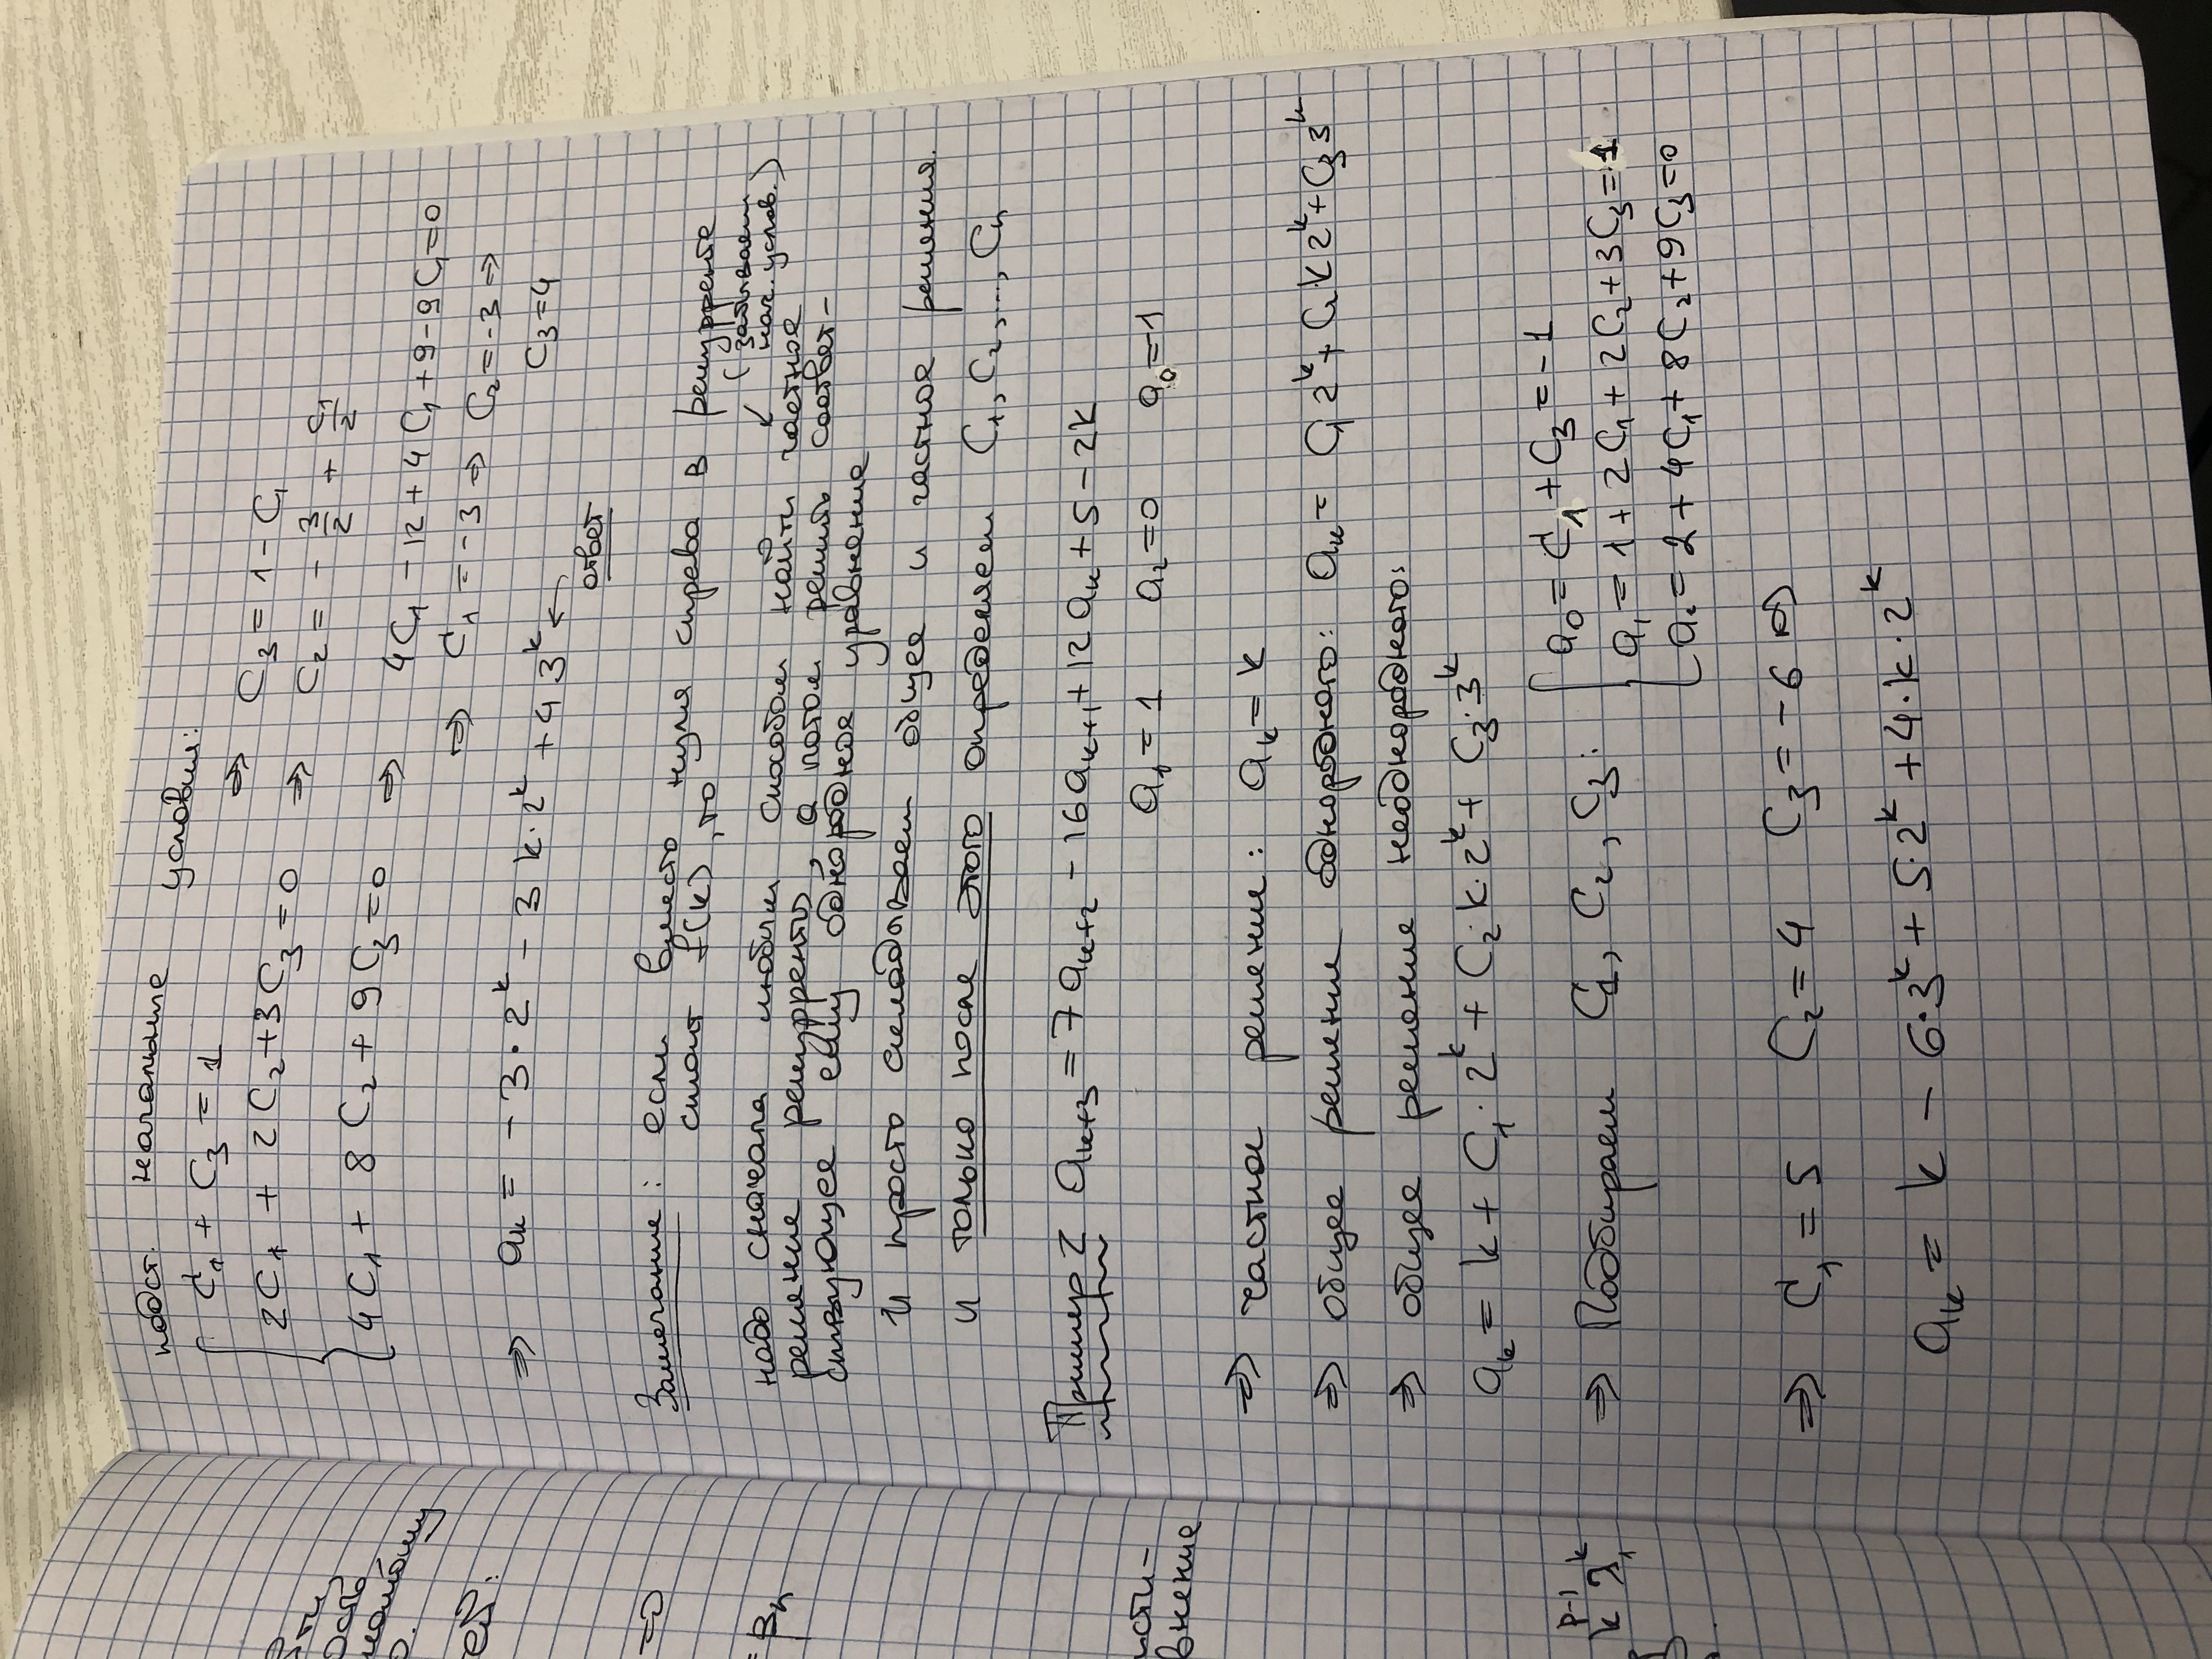 подст. начальные условия:
C₁ + C₃ = 1 ⇒ C₃ = 1 - C₁
2C₁ + 2C₂ + 3C₃ = 0 ⇒ C₂ = - 3/2 + C₁/2
4C₁ + 8C₂ + 9C₃ = 0 ⇒ 4C₁ - 12 + 4C₁ + 9 - 9C₁ = 0
⇒ C₁ = -3 ⇒ C₂ = -3 ⇒
C₃ = 4
⇒ aₖ = -3·2ᵏ - 3k·2ᵏ + 4 3ᵏ ←
ответ
Замечание: если вместо нуля справа в рекурренте
стоит f(k), то
(забываем
нач. услов.)
надо сначала любым способом найти частное
решение рекурренты, а потом решить соответ-
ствующее ему однородное уравнение
и просто складываем общее и частное решения.
и только после этого определяем C₁, C₂, ..., Cₙ
Пример 2 aₖ₊₃ = 7aₖ₊₂ - 16aₖ₊₁ + 12aₖ + 5 - 2k
a₁ = 1 a₂ = 0 a₀ = -1
⇒ частное решение: aₖ = k
⇒ общее решение однородного: aₖ = C₁2ᵏ + C₂·k2ᵏ + C₃3ᵏ
⇒ общее решение неоднородного:
aₖ = k + C₁·2ᵏ + C₂·k·2ᵏ + C₃·3ᵏ
⇒ Подбираем C₁, C₂, C₃:
a₀ = C₁ + C₃ = -1
a₁ = 1 + 2C₁ + 2C₂ + 3C₃ = 1
a₂ = 2 + 4C₁ + 8C₂ + 9C₃ = 0
⇒ C₁ = 5 C₂ = 4 C₃ = -6 ⇒
aₖ = k - 6·3ᵏ + 5·2ᵏ + 4·k·2ᵏ